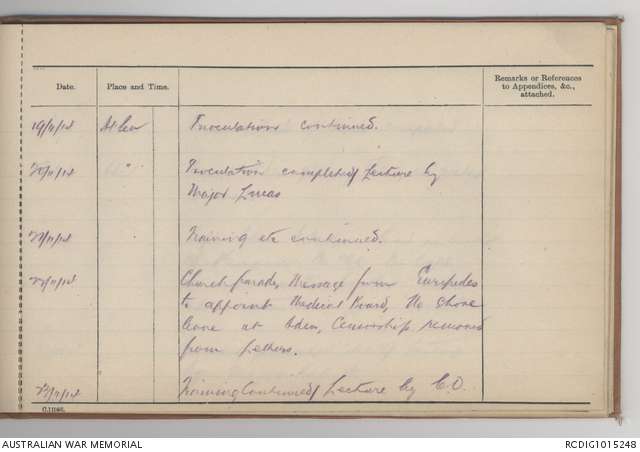 Date.
Place and Time.
Remarks or References
to Appendices, &c.,
attached.
19/11/14 At Sea Inoculations continued.
20/11/14 " Inoculation completed Lecture by
Major Lucas
21/11/14 Training etc continued.
22/11/14 Church parade, Message from Euripides
to appoint Medical Board, No shore
leave at Aden, Censorship removed
from letters.
23/11/14 Training Continued Lecture by C.O.
AUSTRALIAN WAR MEMORIAL
RCDIG1015248